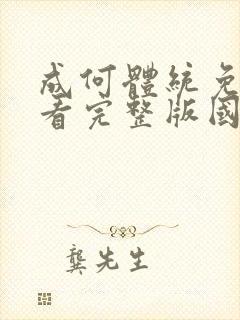 成何體統免
看完整版國
龔先生